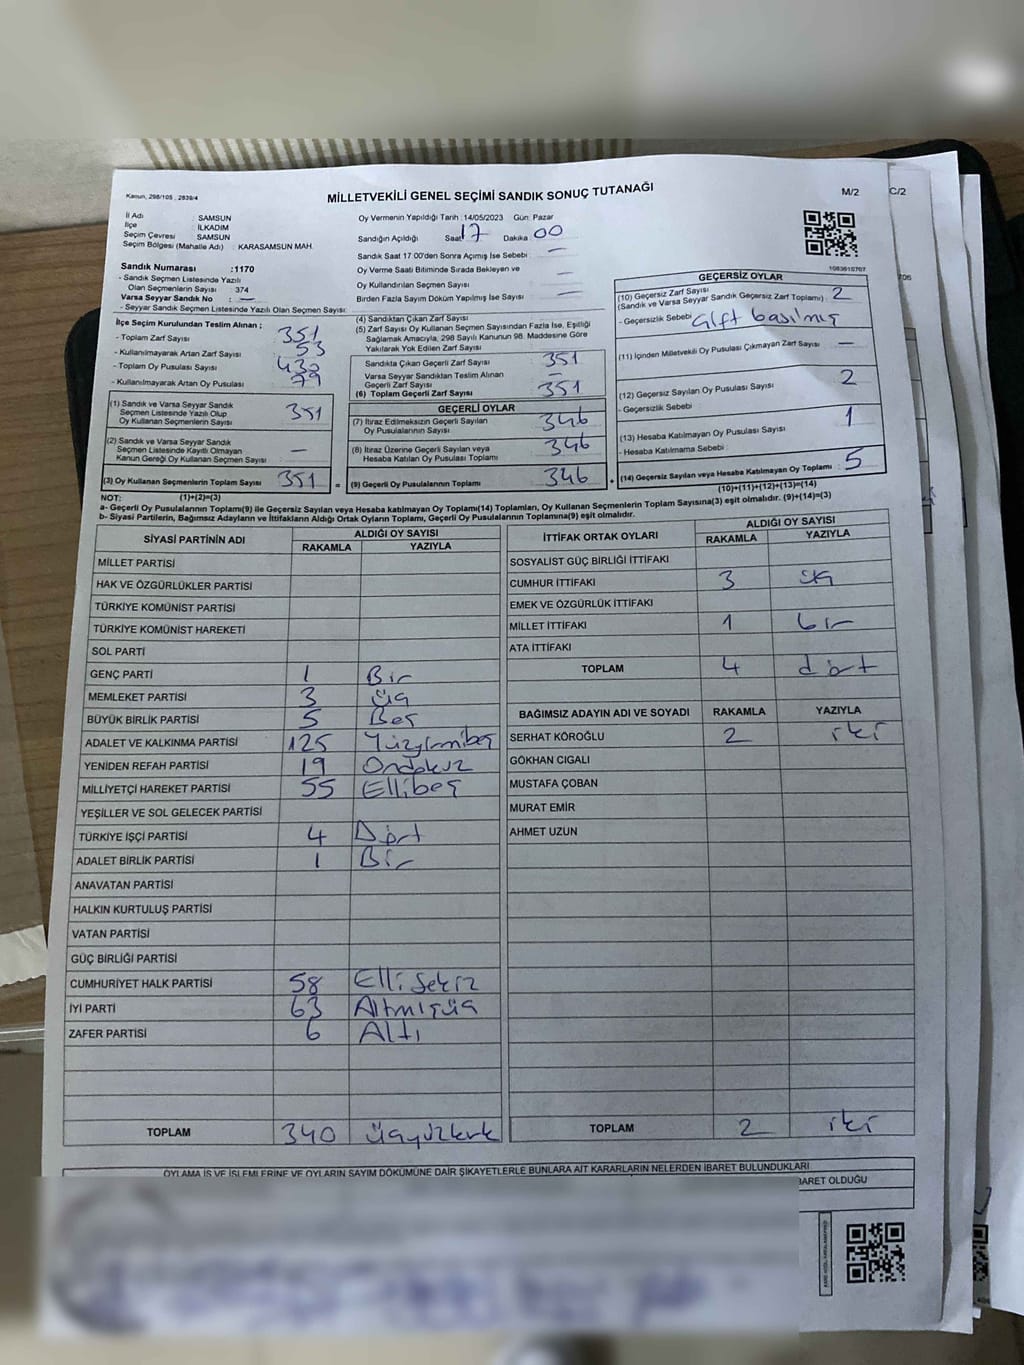 Kanun, 298/105 , 2839/4
MİLLETVEKİLİ GENEL SEÇİMİ SANDIK SONUÇ TUTANAĞI
M/2
C/2
İl Adı : SAMSUN
İlçe : İLKADIM
Seçim Çevresi : SAMSUN
Seçim Bölgesi (Mahalle Adı) : KARASAMSUN MAH.
Oy Vermenin Yapıldığı Tarih :14/05/2023 Gün: Pazar
Sandığın Açıldığı Saat 17 Dakika 00
Sandık Saat 17 00'den Sonra Açımış İse Sebebi —
Oy Verme Saati Bitiminde Sırada Bekleyen ve
Oy Kullandırılan Seçmen Sayısı —
Birden Fazla Sayım Döküm Yapılmış İse Sayısı —
1083615707
Sandık Numarası :1170
- Sandık Seçmen Listesinde Yazılı
Olan Seçmenlerin Sayısı : 374
Varsa Seyyar Sandık No : —
- Seyyar Sandık Seçmen Listesinde Yazılı Olan Seçmen Sayısı:
İlçe Seçim Kurulundan Teslim Alınan ;
- Toplam Zarf Sayısı 351
- Kullanılmayarak Artan Zarf Sayısı 53
- Toplam Oy Pusulası Sayısı
- Kullanılmayarak Artan Oy Pusulası 79
(1) Sandık ve Varsa Seyyar Sandık
Seçmen Listesinde Yazılı Olup
Oy Kullanan Seçmenlerin Sayısı : 351
(2) Sandık ve Varsa Seyyar Sandık
Seçmen Listesinde Kayıtlı Olmayan
Kanun Gereği Oy Kullanan Seçmen Sayısı : —
(3) Oy Kullanan Seçmenlerin Toplam Sayısı : 351 =
(4) Sandıktan Çıkan Zarf Sayısı
(5) Zarf Sayısı Oy Kullanan Seçmen Sayısından Fazla İse, Eşitliği
Sağlamak Amacıyla, 298 Sayılı Kanunun 98. Maddesine Göre
Yakılarak Yok Edilen Zarf Sayısı
Sandıkta Çıkan Geçerli Zarf Sayısı 351
Varsa Seyyar Sandıktan Teslim Alınan
Geçerli Zarf Sayısı —
(6) Toplam Geçerli Zarf Sayısı 351
GEÇERLİ OYLAR
(7) İtiraz Edilmeksizin Geçerli Sayılan
Oy Pusulalarının Sayısı : 346
(8) İtiraz Üzerine Geçerli Sayılan veya
Hesaba Katılan Oy Pusulası Toplamı : 346
(9) Geçerli Oy Pusulalarının Toplamı : 346 +
GEÇERSİZ OYLAR
(10) Geçersiz Zarf Sayısı
(Sandık ve Varsa Seyyar Sandık Geçersiz Zarf Toplamı) : 2
- Geçersizlik Sebebi Çift basılmış
(11) İçinden Milletvekili Oy Pusulası Çıkmayan Zarf Sayısı : —
(12) Geçersiz Sayılan Oy Pusulası Sayısı : 2
- Geçersizlik Sebebi
(13) Hesaba Katılmayan Oy Pusulası Sayısı : 1
- Hesaba Katılmama Sebebi
(14) Geçersiz Sayılan veya Hesaba Katılmayan Oy Toplamı : 5
NOT: (1)+(2)=(3)
(10)+(11)+(12)+(13)=(14)
a- Geçerli Oy Pusulalarının Toplamı(9) ile Geçersiz Sayılan veya Hesaba katılmayan Oy Toplamı(14) Toplamları, Oy Kullanan Seçmenlerin Toplam Sayısına(3) eşit olmalıdır. (9)+(14)=(3)
b- Siyasi Partilerin, Bağımsız Adayların ve İttifakların Aldığı Ortak Oyların Toplamı, Geçerli Oy Pusulalarının Toplamına(9) eşit olmalıdır.
SİYASİ PARTİNİN ADI ALDIĞI OY SAYISI
RAKAMLA YAZIYLA
MİLLET PARTİSİ
HAK VE ÖZGÜRLÜKLER PARTİSİ
TÜRKİYE KOMÜNİST PARTİSİ
TÜRKİYE KOMÜNİST HAREKETİ
SOL PARTİ
GENÇ PARTİ 1 Bir
MEMLEKET PARTİSİ 3 üç
BÜYÜK BİRLİK PARTİSİ 5 Beş
ADALET VE KALKINMA PARTİSİ 125 Yüzyirmibeş
YENİDEN REFAH PARTİSİ 19 Ondokuz
MİLLİYETÇİ HAREKET PARTİSİ 55 Ellibeş
YEŞİLLER VE SOL GELECEK PARTİSİ
TÜRKİYE İŞÇİ PARTİSİ 4 Dört
ADALET BİRLİK PARTİSİ 1 Bir
ANAVATAN PARTİSİ
HALKIN KURTULUŞ PARTİSİ
VATAN PARTİSİ
GÜÇ BİRLİĞİ PARTİSİ
CUMHURİYET HALK PARTİSİ 58 Elli Sekiz
İYİ PARTİ 63 Altmışüç
ZAFER PARTİSİ 6 Altı
TOPLAM 340 üçyüzkırk
İTTİFAK ORTAK OYLARI ALDIĞI OY SAYISI
RAKAMLA YAZIYLA
SOSYALİST GÜÇ BİRLİĞİ İTTİFAKI
CUMHUR İTTİFAKI 3 üç
EMEK VE ÖZGÜRLÜK İTTİFAKI
MİLLET İTTİFAKI 1 bir
ATA İTTİFAKI
TOPLAM 4 dört
BAĞIMSIZ ADAYIN ADI VE SOYADI RAKAMLA YAZIYLA
SERHAT KÖROĞLU 2 iki
GÖKHAN CIGALI
MUSTAFA ÇOBAN
MURAT EMİR
AHMET UZUN
TOPLAM 2 iki
OYLAMA İŞ VE İŞLEMLERİNE VE OYLARIN SAYIM DÖKÜMÜNE DAİR ŞİKAYETLERLE BUNLARA AİT KARARLARIN NELERDEN İBARET BULUNDUKLARI
BARET OLDUĞU